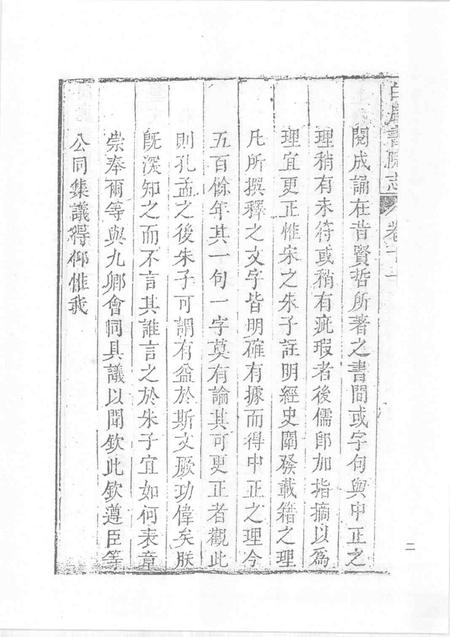 白鹿書院志 卷十二
閱成誦在昔賢哲所著之書間或字句與中正之
理稍有未符或稍有疵瑕者後儒卽加指摘以爲
理宜更正惟宋之朱子註明經史闡發載籍之理
凡所撰釋之文字皆明確有據而得中正之理今
五百餘年其一句一字莫有論其可更正者觀此
則孔孟之後朱子可謂有益於斯文厥功偉矣朕
旣深知之而不言其誰言之於朱子宜如何表章
崇奉爾等與九卿會同具議以聞欽此欽遵臣等
公同集議得仰惟我
二